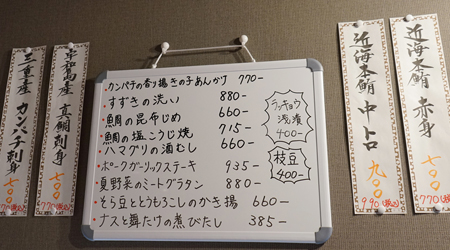 三重産 カンパチ刺身 七〇〇
770(税込)
宇和島産 真鯛刺身 七〇〇
770(税込)
カンパチの香り揚きの子あんかけ 770-
すずきの洗い 880-
真鯛の昆布じめ 660-
真鯛の塩こうじ焼 715-
ハマグリの酒むし 660-
ポークガーリックステーキ 935-
夏野菜のミートグラタン 880-
そら豆ととうもろこしのかき揚 660-
ナスと舞たけの煮びたし 385-
ラッキョウ
浅漬
400-
枝豆
400-
近海本鮪 中トロ 九〇〇
990(税込)
近海本鮪 赤身 七〇〇
770(税込)